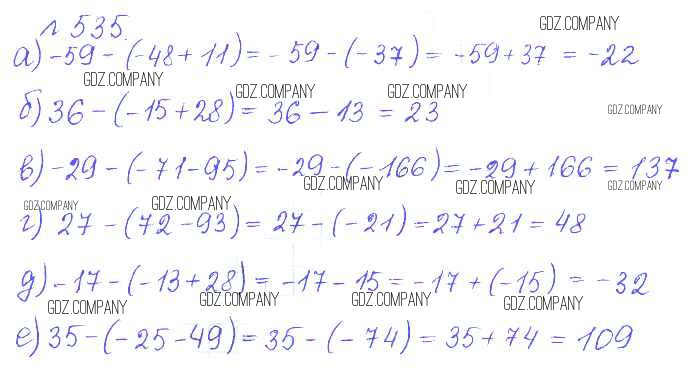 № 535.
GDZ.COMPANY
а) -59 - (-48 + 11) = -59 - (-37) = -59 + 37 = -22
GDZ.COMPANY GDZ.COMPANY GDZ.COMPANY
б) 36 - (-15 + 28) = 36 - 13 = 23
GDZ.COMPANY
в) -29 - (-71 - 95) = -29 - (-166) = -29 + 166 = 137
GDZ.COMPANY GDZ.COMPANY GDZ.COMPANY
GDZ.COMPANY GDZ.COMPANY
г) 27 - (72 - 93) = 27 - (-21) = 27 + 21 = 48
д) -17 - (-13 + 28) = -17 - 15 = -17 + (-15) = -32
GDZ.COMPANY GDZ.COMPANY GDZ.COMPANY GDZ.COMPANY
е) 35 - (-25 - 49) = 35 - (-74) = 35 + 74 = 109